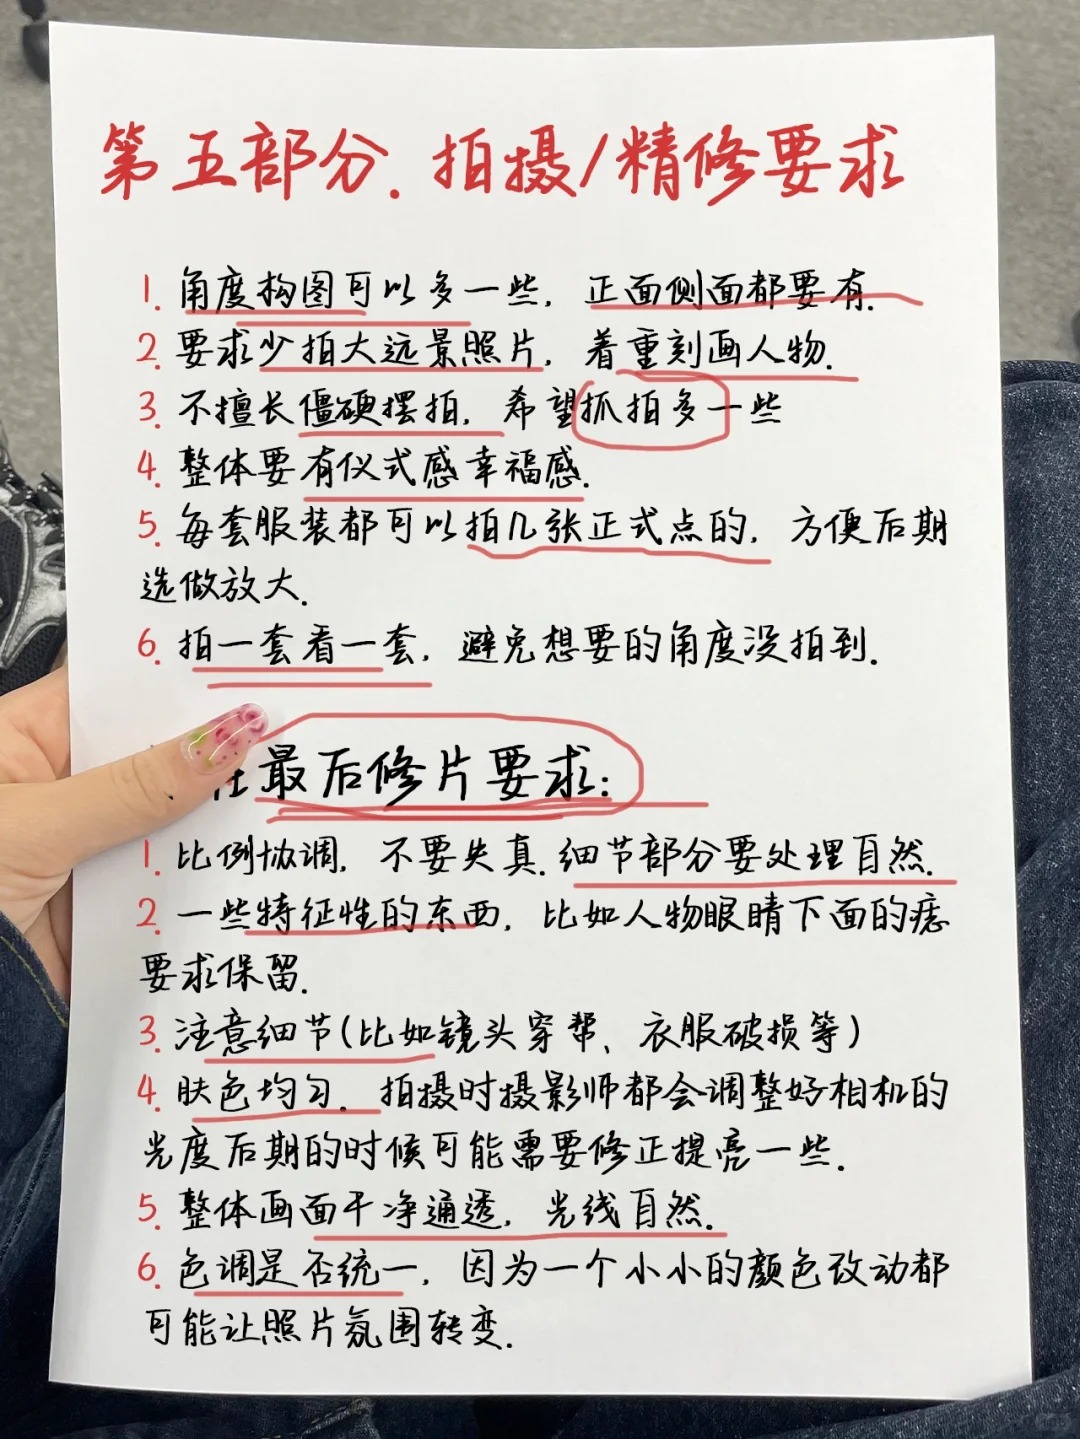 第五部分.拍摄/精修要求
1.角度构图可以多一些,正面侧面都要有.
2.要求少拍大远景照片,着重刻画人物.
3.不擅长僵硬摆拍,希望抓拍多一些
4.整体要有仪式感幸福感.
5.每套服装都可以拍几张正式点的,方便后期
选做放大.
6.拍一套看一套,避免想要的角度没拍到.
最后修片要求:
1.比例协调,不要失真.细节部分要处理自然.
2.一些特征性的东西,比如人物眼睛下面的痣
要求保留.
3.注意细节(比如镜头穿帮、衣服破损等)
4.肤色均匀.拍摄时摄影师都会调整好相机的
光度后期的时候可能需要修正提亮一些.
5.整体画面干净通透,光线自然.
6.色调是否统一,因为一个小小的颜色改动都
可能让照片氛围转变.